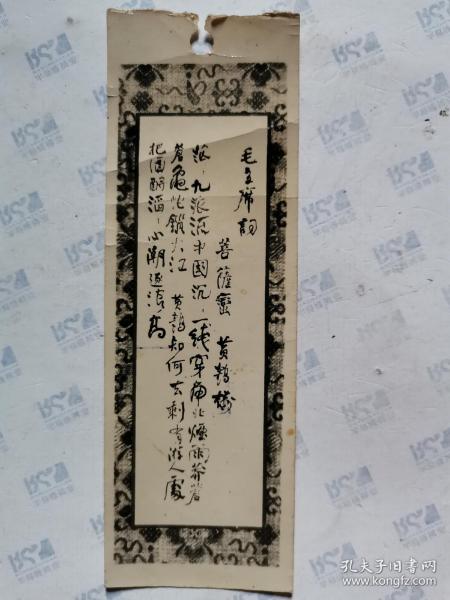 毛主席詞
菩薩蠻 黄鶴樓
茫、九派流中國沉、一綫穿南北煙雨莽蒼
蒼龜蛇鎖大江 黄鶴知何去剩有遊人處
把酒酹滔、心潮逐浪高
孔夫子旧书网
www.kongfz.com